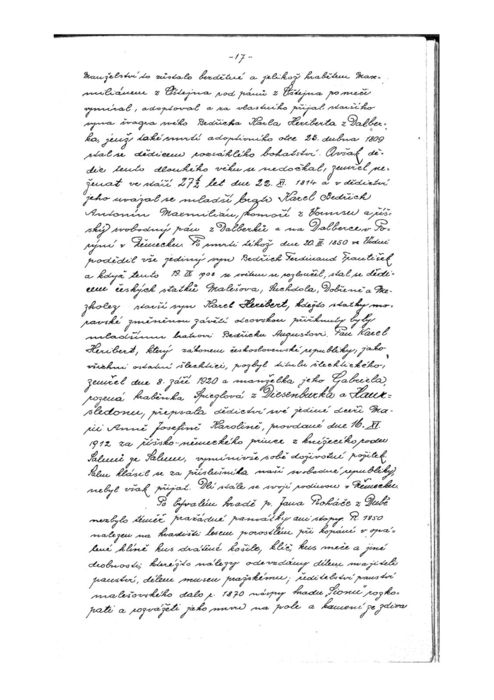 -17-
Manželství to zůstalo bezdětné a jelikož hrabětem Max-
miliánem z Oštejna rod pánů z Oštejna po meči
vymíral, adoptoval a za vlastního přijal staršího
syna švagra svého Bedřicha Karla Heriberta z Dalber-
ka, jenž také smrtí adoptivního otce 22. dubna 1809
stal se dědicem rozsáhlého bohatství. Avšak dě-
dic tento dlouhého věku se nedočkal, zemřel ne-
ženat ve stáří 27½ let dne 22. 1814 a v dědictví
jeho uvázal se mladší bratr Karel Bedřich
Antonín Maxmilian, komoří z Vormsu a říš-
ský svobodný pán z Dalberků a na Dalberce v Po-
rýní v Německu. Po smrti téhož dne 20. III 1850 ve Vídni
podědil vše jediný syn Bedřich Ferdinand František
a když tento 19. IX 1908 se světem se rozloučil, stal se dědi-
cem českých statků Malešova, Suchdola, Dobřeně a Ma-
xholez starší syn Karel Heribert, kdežto statky mo-
ravské změněnou závětí otcovskou přiřknuty byly
mladšímu bratrovi Bedřichu Augustovi. Pan Karel
Heribert, který zákonem československé republiky, jako
všichni ostatní šlechtici, pozbyl titulu šlechtického,
zemřel dne 8. září 1920 a manželka jeho Gabriela
rozená hraběnka Spieglová z Diesenberka a Hank-
sledenu, přepsala dědictví své jediné dceři Ma-
rii Anně Josefině Karolině, provdané dne 16. XI
1912 za říšsko-německého prince z knížecího rodu
Salmů ze Salmu, vymínivše sobě doživotní požitek
Salm hlásil se za příslušníka naší svobodné republiky
nebyl však přijat. Dlí stále se svojí podivnou v Německu.
Po bývalém hradě p. Jana Roháče z Dubé
nezbylo téměř pražádné památky ani stopy. R. 1850
nalezen na hradišti lesem porostlém při kopání v opá-
lené hlíně kus drátěné košile, klíč, kus meče a jiné
drobnosti, kteréžto nálezy odevzdány dílem majiteli
panství, dílem museu pražskému; ředitelství panství
malešovského dalo r. 1870 násypy hradu "Sionu" rozko-
pati a rozvážeti jeho mrvu na pole a kamení ze zdiva